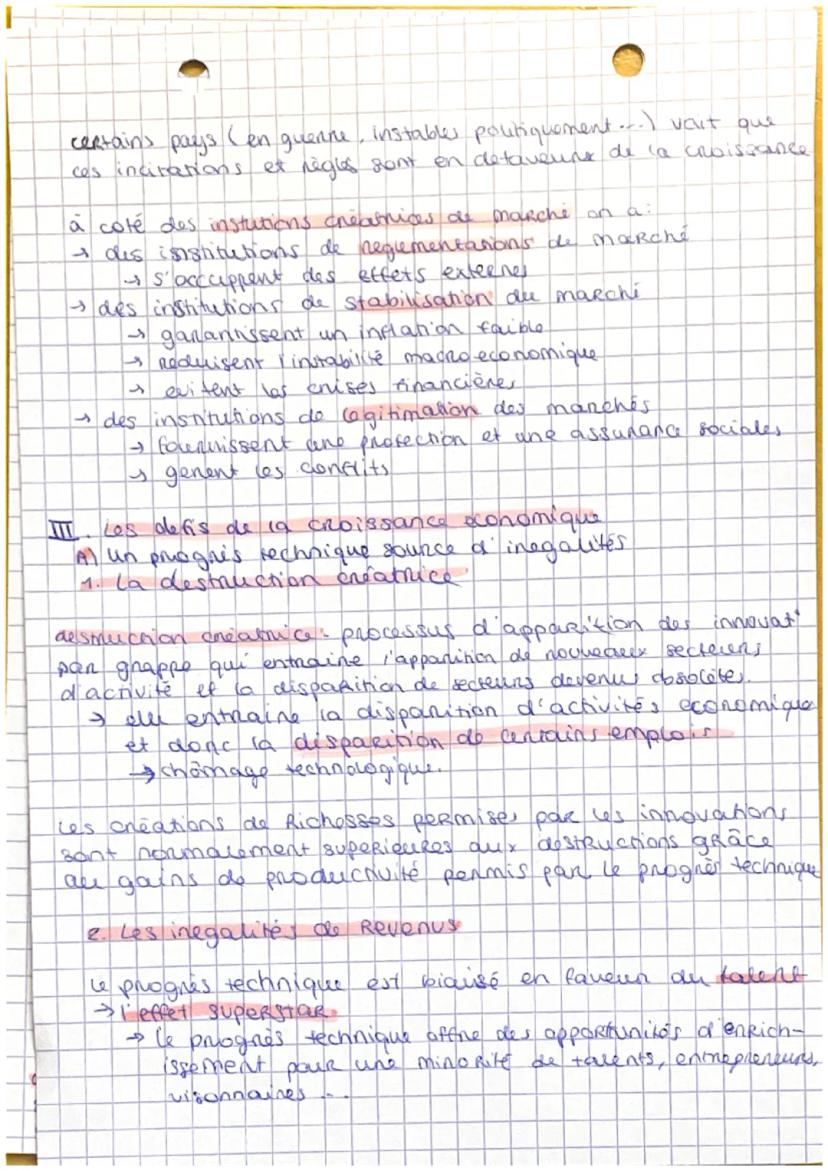 certains pays (en guerre, instables politiquement...) vait que
ces incitations et règles sont en defaveurs de la croissance
à coté des instutions créatrices de marché on a:
→ des institutions de reglementations de marché
→ s'occuppent des effets externes
→ des institutions de stabilisation du marché
→ garantissent un inflation faible
→ reduisent l'instabilité macro economique
→ evitent les crises financières
→ des institutions de legitimation des marchés
→ fournissent une protection et une assurance sociales
→ gerent les conflits
III. Les defis de la croissance economique
A) Un progrès technique source d'inegalités
1. La destruction créatrice
destruction créatrice: processus d'apparition des innovat°
par grappe qui entraine l'apparition de nouveaux secteurs
d'activité et la disparition de secteurs devenus obsolètes.
→ elle entraine la disparition d'activités economique
et donc la disparition de certains emplois
→ chômage technologique.
Les créations de Richesses permises par les innovations
sont normalement superieures aux destructions grâce
au gains de productivité permis par le progrès technique
2. Les inegalités de Revenus
Le progrès technique est biaisé en faveur du talent
→ l'effet superstar
→ Le progrès technique offre des apportunités d'enrich-
issement pour une minorité de talents, entrepreneurs,
visonnaires ...